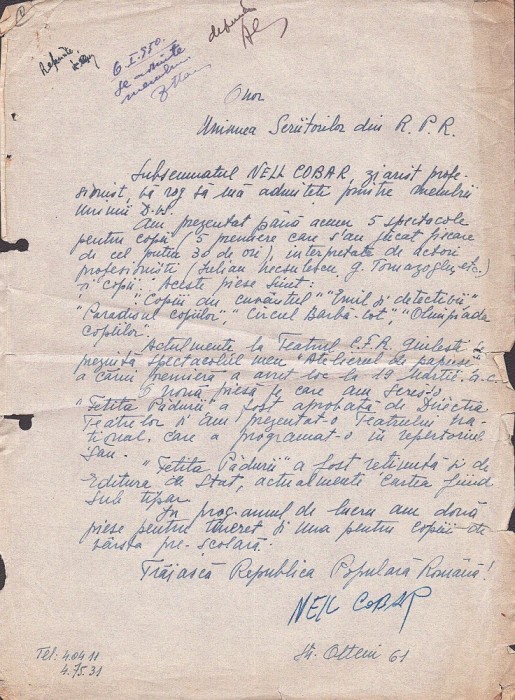 1
Onor
Uniunea Scriitorilor din R.P.R.
Subsemnatul NELL COBAR, ziarist profe-
sionist, vă rog să mă admiteți printre membrii
Uniunii D-vs.
Am prezentat până acum 5 spectacole
pentru copii (5 premiere care s'au jucat fiecare
de cel puțin 30 de ori), interpretate de actori
profesioniști (Iulian Necșulescu, G. Tomazoglu, etc.)
și copii. Aceste piese sunt:
"Copiii au cuvântul" "Emil și detectivii"
"Paradisul copiilor", "Circul Barbă-Cot", "Olimpiada
copiilor".
Actualmente la Teatrul C.F.R. Giulești se
prezintă spectacolul meu "Atelierul de păpuși"
a cărui premieră a avut loc la 19 Martie a.c.
O nouă piesă pe care am scris-o
"Fetița Pădurii" a fost aprobată de Direcția
Teatrelor și am prezentat-o Teatrului Na-
țional, care a programat-o în repertoriul
său.
"Fetița Pădurii" a fost reținută și de
Editura de Stat, actualmente cartea fiind
sub tipar.
In programul de lucru am două
piese pentru tineret și una pentru copiii de
vârsta pre-școlară.
Trăiască Republica Populară Română!
NELL COBAR
Tel: 4.04.11
4.75.31
Str. Olteni 61